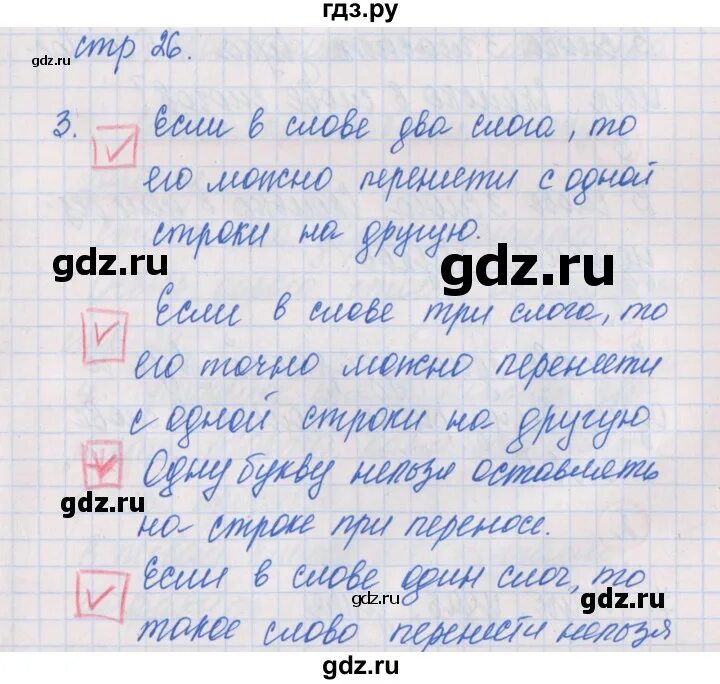 гдз.ру
стр 26.
gdz.ru
3. Если в слове два слога, то
его можно перенести с одной
строки на другую.
gdz.ru
gdz.ru
Если в слове три слога, то
его точно можно перенести
с одной строки на другую
Одну букву нельзя оставлять
gdz.ru
на строке при переносе.
Если в слове один слог, то
gdz.ru
gdz.ru
такое слово перенести нельзя
gdz.ru